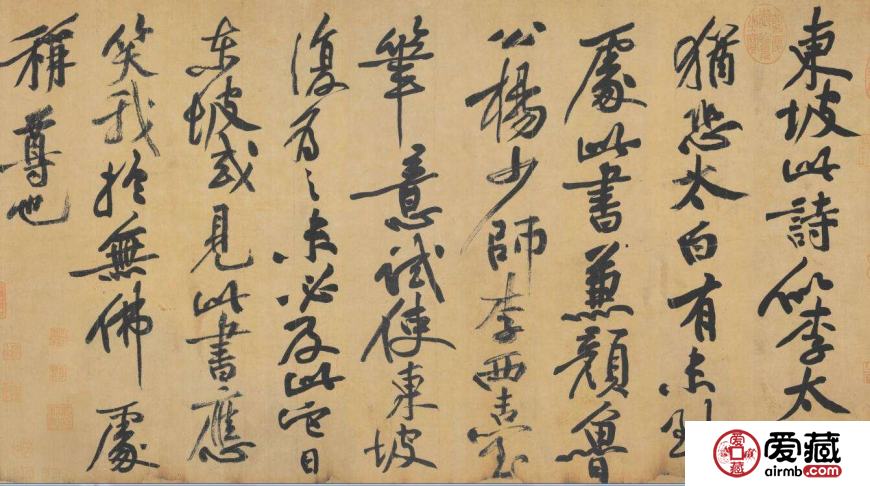 東坡此詩似李太
猶恐太白有未到
處此書兼顏魯
公楊少師李西臺
筆意試使東坡
復為之未必及此它日
東坡或見此書應
笑我於無佛處
稱尊也
爱藏
爱藏
airmb.com